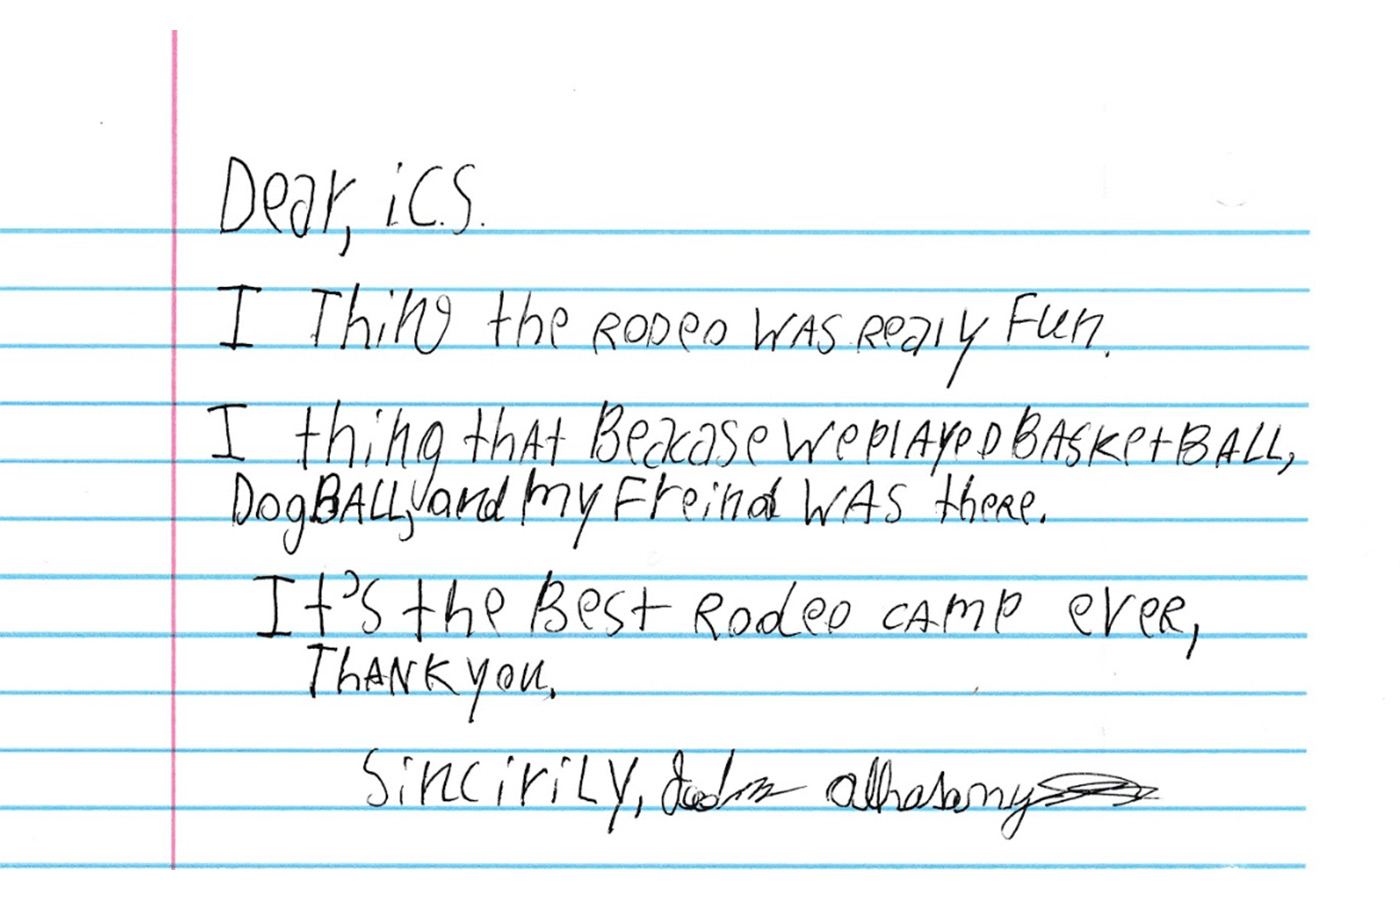 Dear, i.C.S.
I Thing the RODeo WAS Realy Fun.
I thing thAt Becase we plAyeD BASketBALL,
DogBALL, and my Freind WAS there.
It's the Best Rodeo cAmp eveR,
ThANK you.
Sincirily, alhasamy